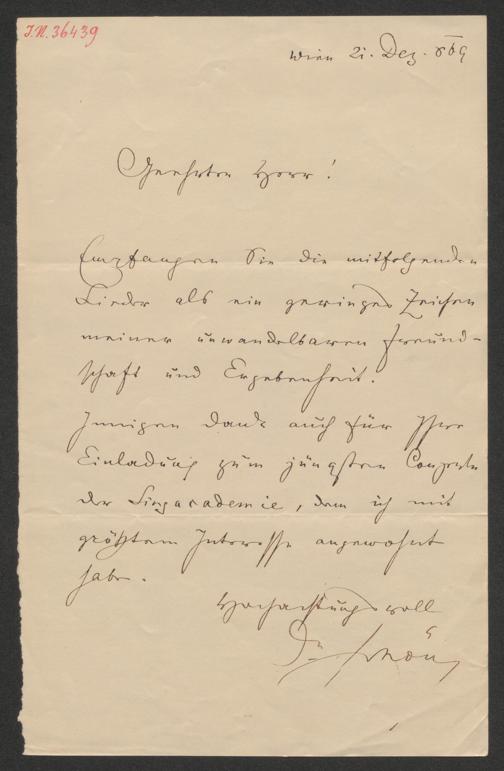 I.N. 36439
Wien 21. Dez. 869
Geehrter Herr!
Empfangen Sie die mitfolgenden
Lieder als ein geringes Zeichen
meiner unwandelbaren Freund-
schaft und Ergebenheit.
Innigen Dank auch für Ihre
Einladung zum jüngsten Conzerte
der Singacademie, dem ich mit
größtem Interesse angewohnt
habe.
Hochachtungsvoll
Dr